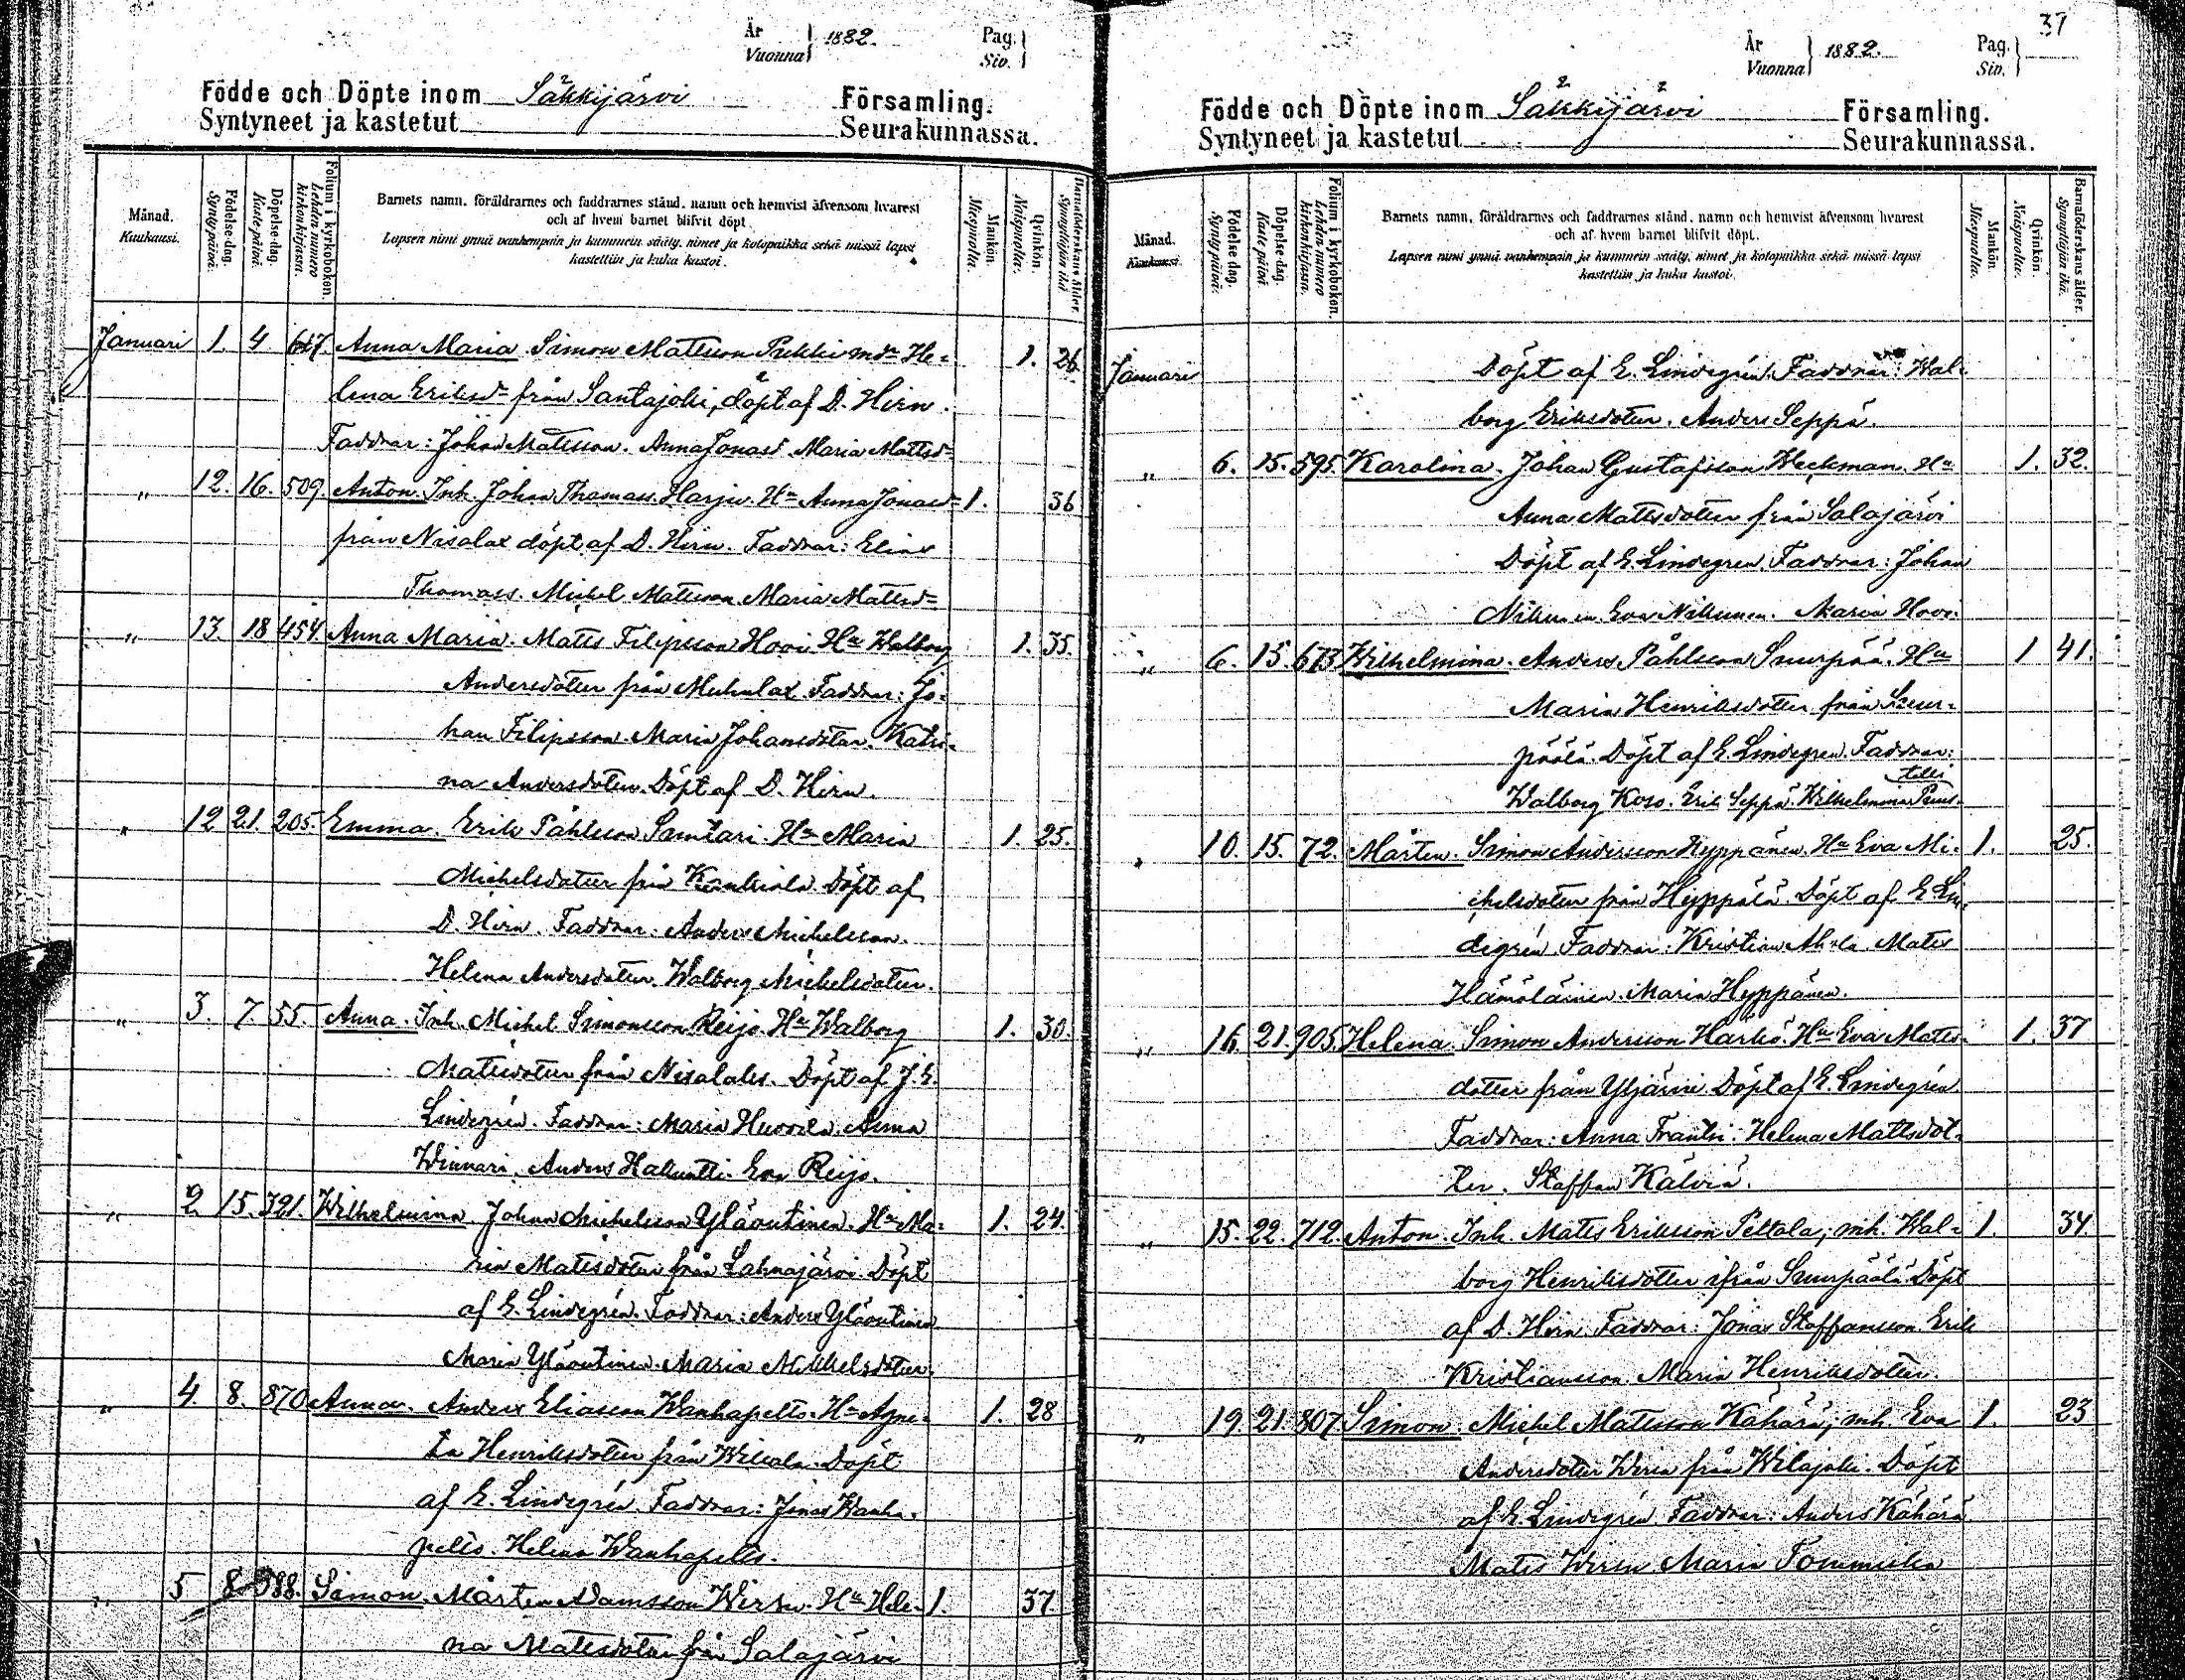 År
Vuonna } 1882.
Pag.
Siv. }
Födde och Döpte inom Säkkijärvi Församling.
Syntyneet ja kastetut Seurakunnassa.
Månad.
Kuukausi.
Födelse-dag.
Synty-päivä.
Döpelse-dag.
Kaste-päivä.
Folium i kyrkoboken.
Lehden numero kirkonkirjassa.
Barnets namn, föräldrarnes och faddrarnes stånd, namn och hemvist äfvensom hvarest
och af hvem barnet blifvit döpt.
Lapsen nimi ynnä vanhempain ja kummein sääty, nimet ja kotopaikka sekä missä lapsi
kastettiin ja kuka kastoi.
Mankön.
Miespuolia.
Qvinkön.
Naispuolia.
Barnaföderskans ålder.
Synnyttäjän ikä.
Januari 1. 4. 617. Anna Maria Simon Mattsson Pukki mdr He- 1. 26
lena Eriksd från Santajoki, döpt af D. Hirn.
Faddrar: Johan Matsson. Anna Jonasd Maria Mattsd
" 12. 16. 509 Anton. Inh. Johan Thomass. Harju. Hu Anna Jonasd 1. 36
från Nisalax döpt af D. Hirn. Faddrar: Elias
Thomass. Michel Matsson. Maria Mattsd
" 13. 18 454. Anna Maria. Matts Filipsson Hovi Hu Walborg 1. 35.
Andersdotter från Muhulax Faddrar: Jo-
han Filipsson. Maria Johansdotter. Katri-
na Andersdotter. Döpt af D. Hirn.
" 12 21. 205. Emma. Erik Påhlsson Suntari. Hu Maria 1. 25.
Michelsdotter från Kankiala Döpt af
D. Hirn. Faddrar: Anders Michelsson.
Helena Andersdotter. Walborg Michelsdotter.
" 3. 7. 55. Anna. Inh. Michel Simonsson Reijo. Hu Walborg 1. 30.
Matsdotter från Nisalaks. Döpt af J. E.
Lindegrén. Faddrar: Maria Huovila. Anna
Winnari. Anders Halluntti. Eva Reijo.
" 2 15. 321. Wilhelmina Johan Michelsson Yläoutinen. Hu Ma- 1. 24.
ria Matsdotter från Lahnajärvi. Döpt
af E. Lindegrén. Faddrar: Anders Yläoutinen
Maria Yläoutinen. Maria Mikkelsdotter.
" 4. 8. 870 Anna. Anders Eliasson Wanhapelto. Hu Agne- 1. 28
ta Henriksdotter från Wilkala. Döpt
af E. Lindegrén. Faddrar: Jonas Wanha-
pelto. Helena Wanhapelto.
" 5 8 588. Simon. Mårten Adamsson Wirén. Hu Hele- 1. 37.
na Matsdotter från Salajärvi
37
År
Vuonna } 1882.
Pag.
Siv. }
Födde och Döpte inom Säkkijärvi Församling.
Syntyneet ja kastetut Seurakunnassa.
Månad.
Kuukausi.
Födelse-dag.
Synty-päivä.
Döpelse-dag.
Kaste-päivä
Folium i kyrkoboken.
Lehden numero kirkonkirjassa.
Barnets namn, föräldrarnes och faddrarnes stånd, namn och hemvist äfvensom hvarest
och af hvem barnet blifvit döpt.
Lapsen nimi ynnä vanhempain ja kummein sääty, nimet ja kotopaikka sekä missä lapsi
kastettiin ja kuka kastoi.
Mankön
Miespuolia.
Qvinkön.
Naispuolia.
Barnaföderskans ålder.
Synnyttäjän ikä.
Januari Döpt af E. Lindegrén. Faddrar: Wal-
borg Eriksdotter. Anders Seppä.
" 6. 15. 595. Karolina. Johan Gustafsson Weckman. Hu 1. 32.
Anna Mattsdotter från Salajärvi
Döpt af E. Lindegrén. Faddrar: Johan
Nikunen Eva Nikunen. Maria Hovi.
" 6. 15. 673 Wilhelmina. Anders Påhlsson Suurpää. Hu 1 41.
Maria Henriksdotter från Suur-
päälä. Döpt af E. Lindegren. Faddrar:
Walborg Koso. Erik Seppä. Wilhelmina Puus-
telli
" 10. 15. 72. Mårten. Simon Andersson Hyppänen. Hu Eva Mi- 1. 25.
chelsdotter från Hyppälä. Döpt af E. Lin-
degrén. Faddrar: Kristian Ahola. Mats
Hämäläinen. Maria Hyppänen.
" 16. 21. 905. Helena. Simon Andersson Harko. Hu Eva Matts- 1. 37
dotter från Yljärvi. Döpt af E. Lindegrén
Faddrar: Anna Frantsi. Helena Mattsdot-
ter. Staffan Kälviä.
" 15. 22. 712. Anton. Inh. Mats Eriksson Peltola, mh. Wal- 1. 34.
borg Henriksdotter ifrån Suurpäälä. Döpt
af D. Hirn. Faddrar: Jonas Staffansson. Erik
Kristiansson. Maria Henriksdotter.
" 19. 21. 807. Simon. Michel Mattsson Kähärä, mh. Eva 1. 23
Andersdotter Wirén från Wilajoki. Döpt
af E. Lindegrén. Faddrar: Anders Kähärä
Mats Wirén Maria Tommiska